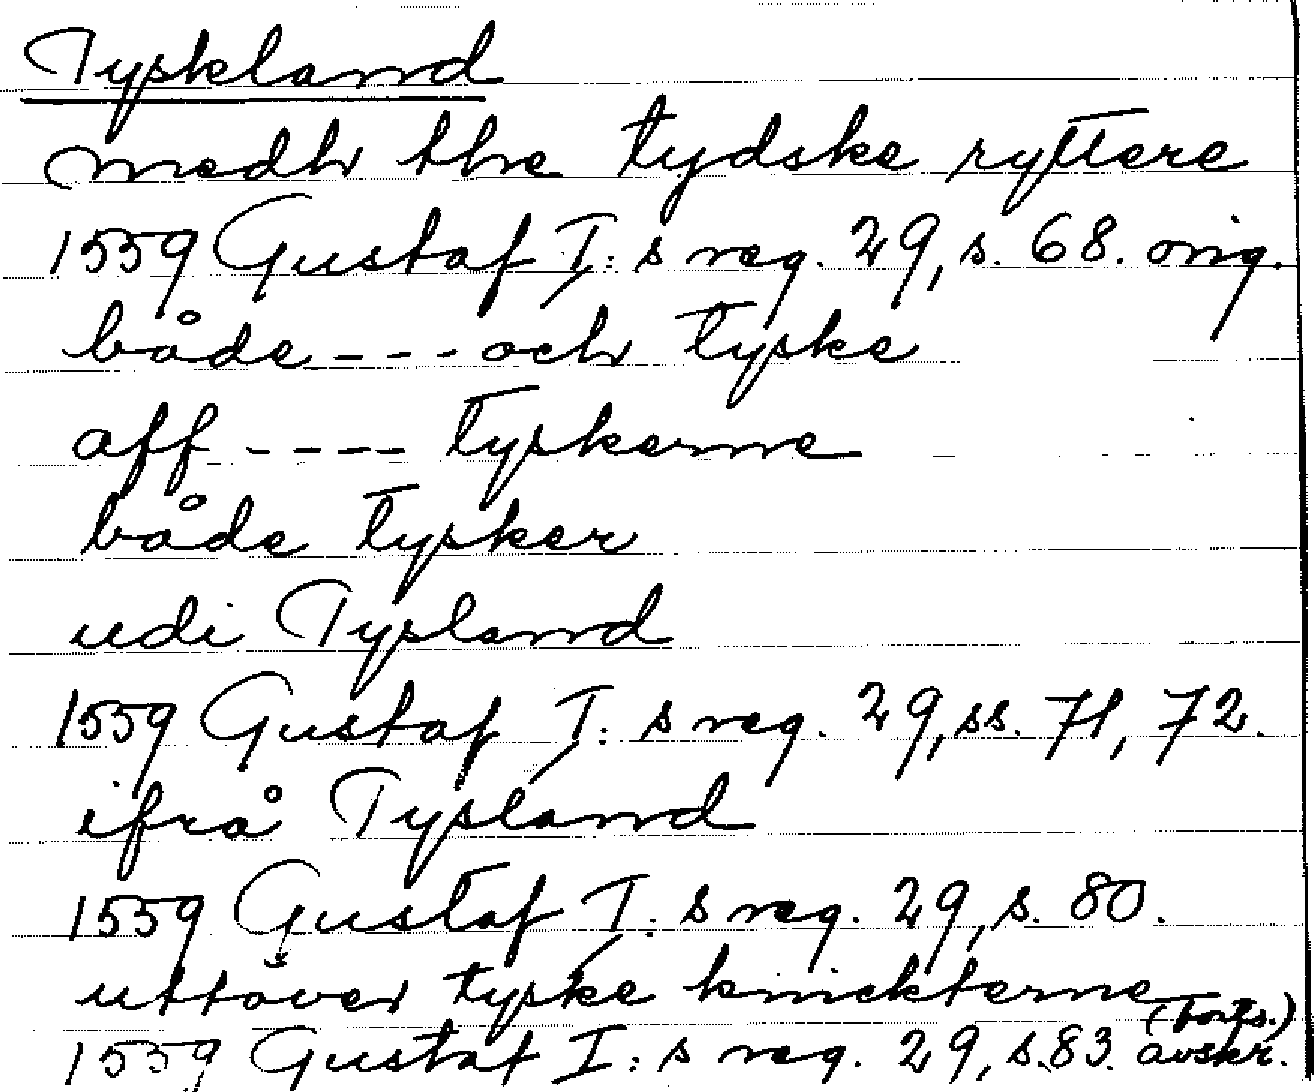 Tyskland
medh the tydske ryttere
1559 Gustaf I: s reg. 29, s. 68. orig.
både --- och tyske
aff ---- tyskerne
både tysker
udi Tysland
1559 Gustaf I: s reg. 29, ss. 71, 72.
ifrå Tysland
1559 Gustaf I: s reg. 29, s. 80.
uttöver tyske knickterne
(forts.)
1559 Gustaf I: s reg. 29, s. 83. avskr.